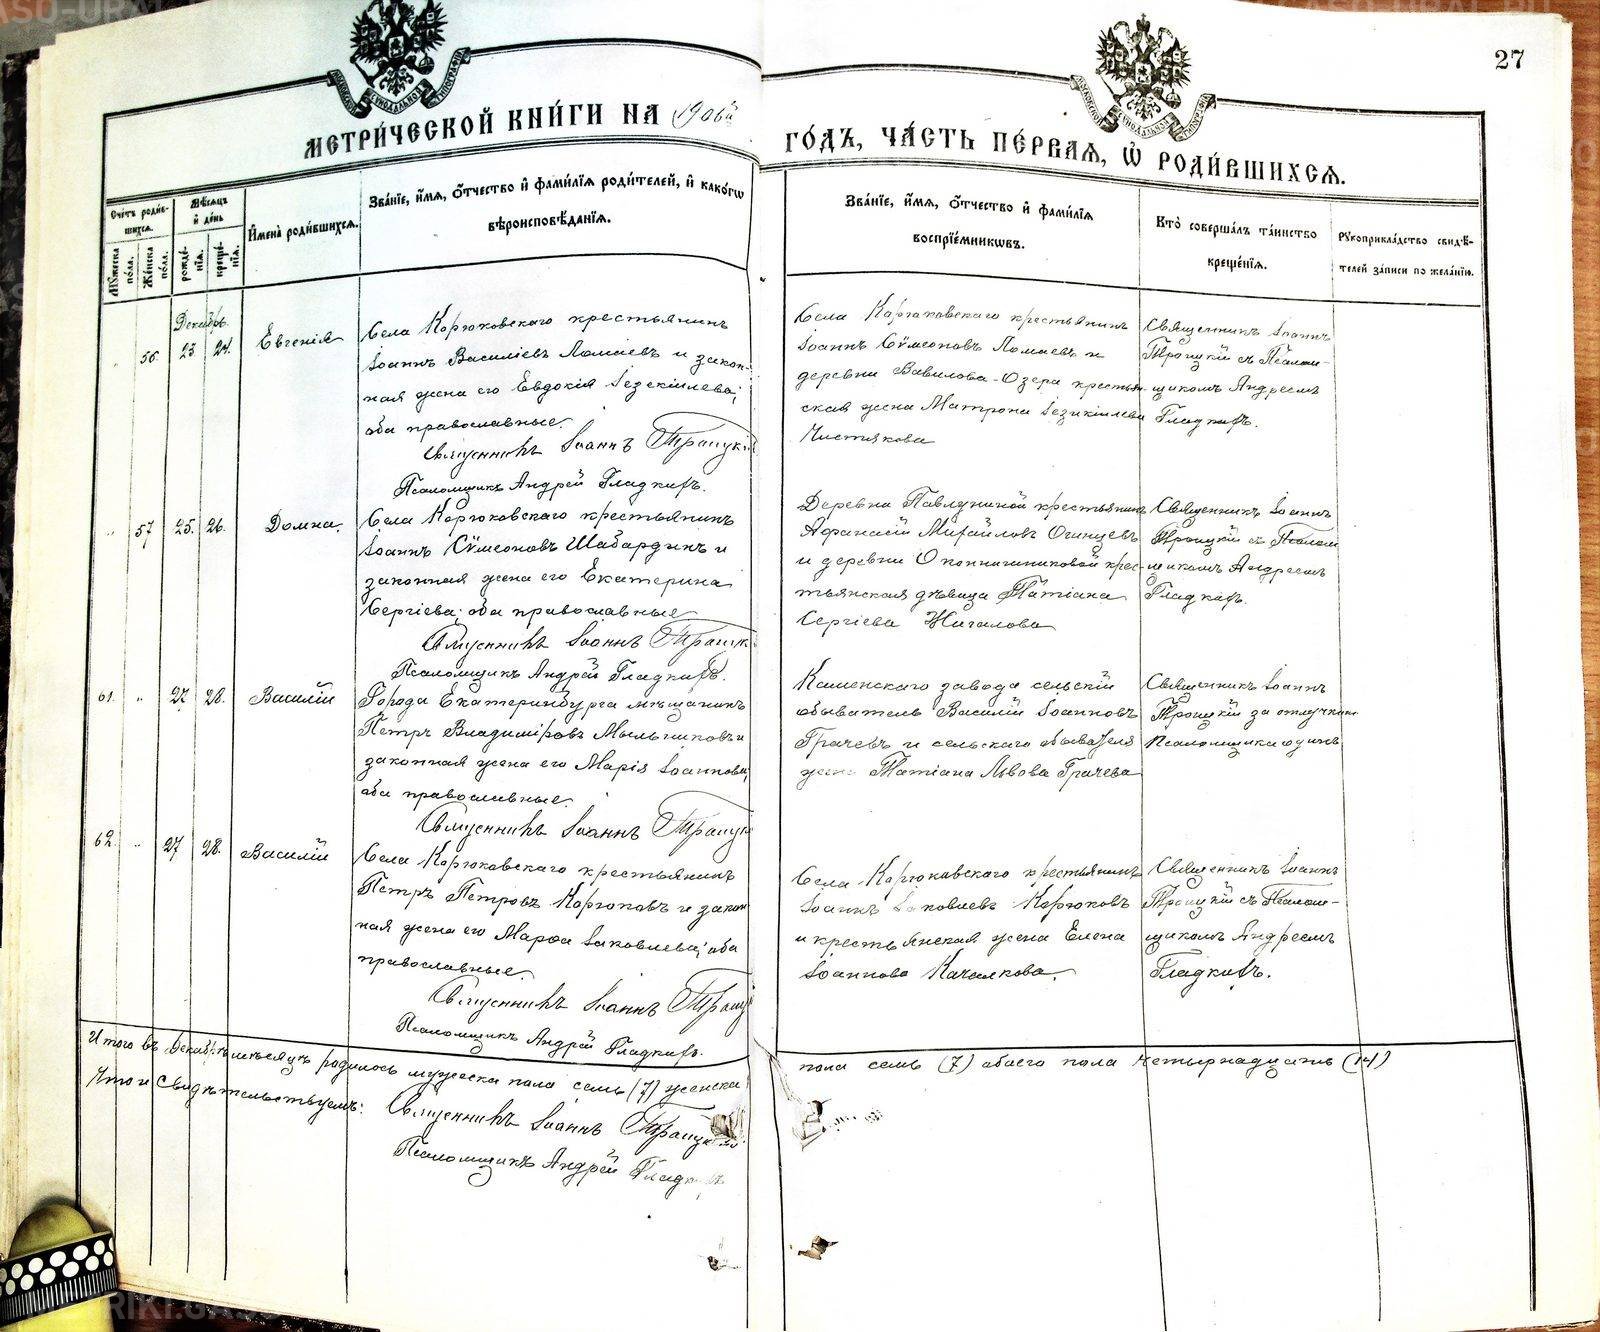 27
МЕТРИ́ЧЕСКОЙ КНИ́ГИ НА 1906й ГО́ДЪ, ЧА́СТЬ ПЕ́РВАѦ, Ѡ҆ РОДИ́ВШИХСѦ.
Сче́тъ роди́в-
шихсѧ.
Мꙋ́жеска по́ла.
Же́нска по́ла.
Мѣ́сѧцъ и҆ де́нь
рожде́-
нїѧ.
креще́-
нїѧ.
И҆мена̀ роди́вшихсѧ.
Зва́нїе, и҆́мѧ, ѻ҆́тчество и҆ фами́лїѧ роди́телей, и҆ како́гѡ
вѣроисповѣ́данїѧ.
Зва́нїе, и҆́мѧ, ѻ҆́тчество и҆ фами́лїѧ
воспрїе́мникѡвъ.
Кто̀ соверша́лъ та́инство
креще́нїѧ.
Рꙋкоприкла́дство свидѣ́-
телей за́писи по жела́нїю.
Декабрь.
56. 23. 24. Евгенія
Села Корюковскаго крестьянинъ
Іоаннъ Василіевъ Ломаевъ и закон-
ная жена его Евдокія Іезекіилева;
оба православные.
Священникъ Іоаннъ Троицкій
Псаломщикъ Андрей Гладкихъ.
Села Корюковскаго крестьянинъ
Іоаннъ Сѵмеоновъ Ломаевъ и
деревни Вавилова-Озера крестьян-
ская жена Матрона Іезикіилева
Чистякова
Священникъ Іоаннъ
Троицкій съ Псалом-
щикомъ Андреемъ
Гладкихъ.
57 25. 26. Домна.
Села Корюковскаго крестьянинъ
Іоаннъ Сѵмеоновъ Шабардинъ и
законная жена его Екатерина
Сергіева; оба православные
Священникъ Іоаннъ Троицк
Псаломщикъ Андрей Гладкихъ.
Деревни Павлуниной крестьянинъ
Афанасій Михайловъ Огинцевъ
и деревни Оконничниковой крес-
тьянская дѣвица Татіана
Сергіева Жигалова
Священникъ Іоаннъ
Троицкій съ Псалом
щикомъ Андреемъ
Гладкихъ.
61. 27. 28. Василій
Города Екатеринбурга мѣщанинъ
Петръ Владиміровъ Мыльниковъ и
законная жена его Марія Іоаннова,
оба православные.
Священникъ Іоаннъ Троицк
Каменскаго завода сельскій
обыватель Василій Іоанновъ
Грачевъ и сельскаго обывателя
жена Татіана Львова Грачева
Священникъ Іоаннъ
Троицкій за отлучкою
Псаломщика одинъ.
62. 27 28. Василій
Села Корюковскаго крестьянинъ
Петръ Петровъ Корюковъ и закон
ная жена его Марфа Іаковлева; оба
православные
Священникъ Іоаннъ Троиц
Псаломщикъ Андрей Гладкихъ.
Села Корюковскаго крестьянинъ
Іоаннъ Іаковлевъ Корюковъ
и крестьянская жена Елена
Іоаннова Качалкова.
Священникъ Іоаннъ
Троицкій съ Псалом-
щикомъ Андреемъ
Гладкихъ.
Итого въ Декабрѣ мѣсяцѣ родилось мужеска пола семь (7) женска пола семь (7) обоего пола четырнадцать (14)
Что и свидѣтельствуемъ: Священникъ Іоаннъ Троицкій
Псаломщикъ Андрей Гладкихъ